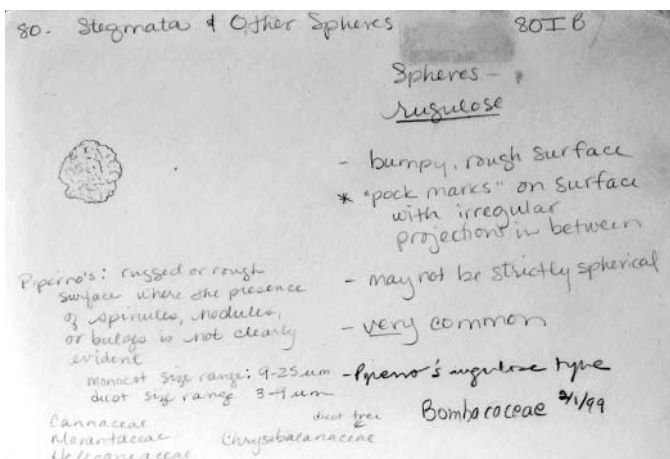 80. Stegmata & Other Spheres 80 I B
Spheres -
rugulose
- bumpy, rough surface
* "pock marks" on surface
with irregular
projections in between
- may not be strictly spherical
- very common
- Piperno's rugulose type
Bombacaceae 2/1/99
Piperno's: rugged or rough
surface where the presence
of spinules, nodules,
or bulges is not clearly
evident
monocot size range: 9-25 um
dicot size range 3-9 um
Cannaceae
Marantaceae
Heliconiaceae
dicot tree
Chrysobalanaceae